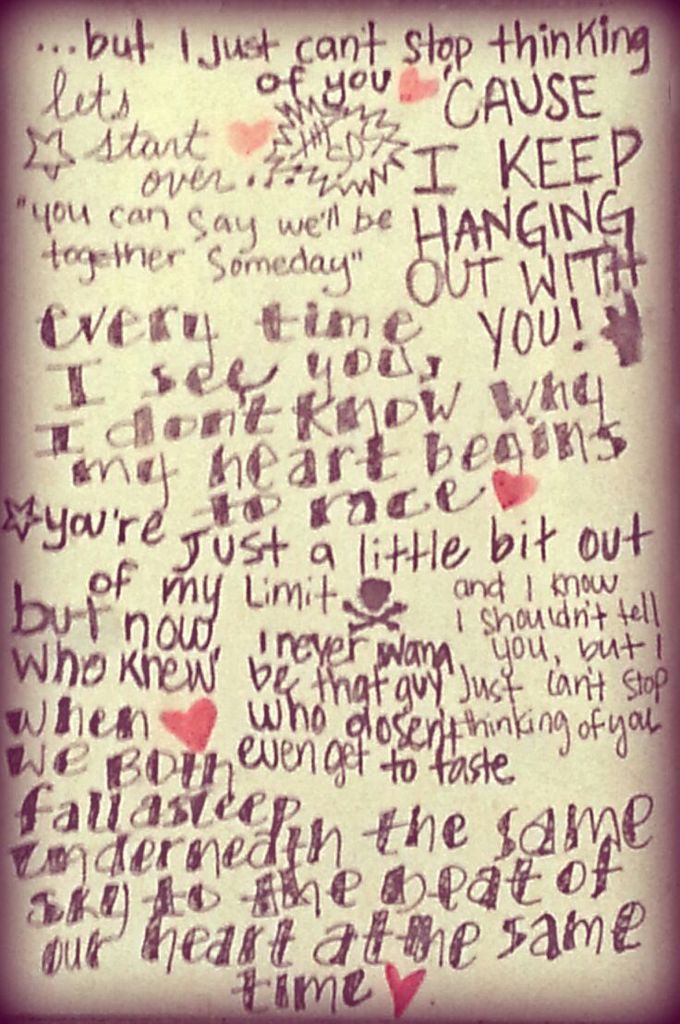 ...but I just can't stop thinking
of you
lets
☆ start
over...
'CAUSE
I KEEP
HANGING
OUT WITH
YOU!
"you can say we'll be
together someday"
every time
I see you,
I don't know why
my heart begins
to race
☆you're
just a little bit out
of my Limit
and I know
I shouldn't tell
you, but I
just can't stop
thinking of you
I never wana
be that guy
who doesen't
even get to taste
but now,
who knew
when
we BOTH
fall asleep
underneath the same
sky to the beat of
our heart at the same
time